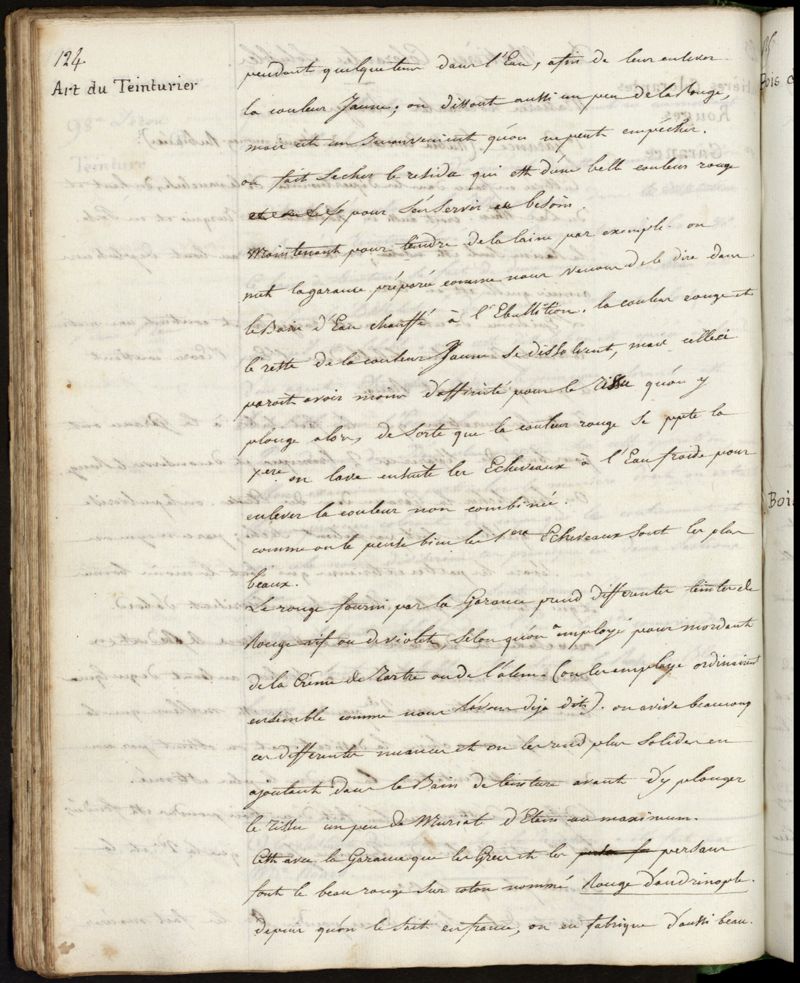 124
Art du Teinturier
pendant quelque tems dans l'Eau, afin de leur enlever
la couleur Jaune; on dissout aussi un peu de la rouge,
mais c'est un inconvenient qu'on ne peut empécher.
on fait secher le residu qui est d'une belle couleur rouge
pour s'en servir au besoin.
Maintenant pour teindre de la laine par exemple. on
met la garance préparée comme nous venons de le dire dans
le Bain d'Eau chauffé à l'Ebullition. la couleur rouge et
le reste de la couleur Jaune se dissolvent, mais celle ci
paroit avoir moins d'affinité pour le tissu qu'on y
plonge alors, de sorte que la couleur rouge se ppte la
1ere on lave ensuite les Echeveaux à l'Eau froide pour
enlever la couleur non combinée.
comme on le pense bien les 1ers Echeveaux sont les plus
beaux.
Le rouge fourni par la Garance prend differentes teintes de
Rouge vif ou de violet, selon qu'on a employé pour mordant
de la Crême de Tartre ou de l'alun (on les employe ordinairent
ensemble comme nous l'avons deja dit). on avive beaucoup
ces differentes nuances et on les rend plus solides en
ajoutant dans le Bain de teinture avant d'y plonger
le tissu un peu de Muriat d'Etain au maximum.
C'est avec la Garance que les Grecs et les persans
font le beau rouge sur coton nommé Rouge d'andrinople.
depuis qu'on le sait en france, on en fabrique d'aussi beau.
Bois
Bois